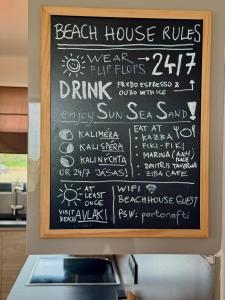 BEACH HOUSE RULES
WEAR
FLIP FLOPS → 24/7
DRINK FREDO ESPRESSO &
OUZO WITH ICE
enjoy SUN SEA SAND!
KALIMÉRA
KALISPÉRA
KALINÝCHTA
OR 24/7 JÁSSAS!
EAT AT
• KAZBA
• FIKI-FIKI
• MARINA/ANNA
• DIMITRIS TAVERNA
• ZIBA CAFE
AT
LEAST
ONCE
VISIT AVLAKI
BEACH
WIFI
BEACHHOUSE GUEST
PSW: portorafti